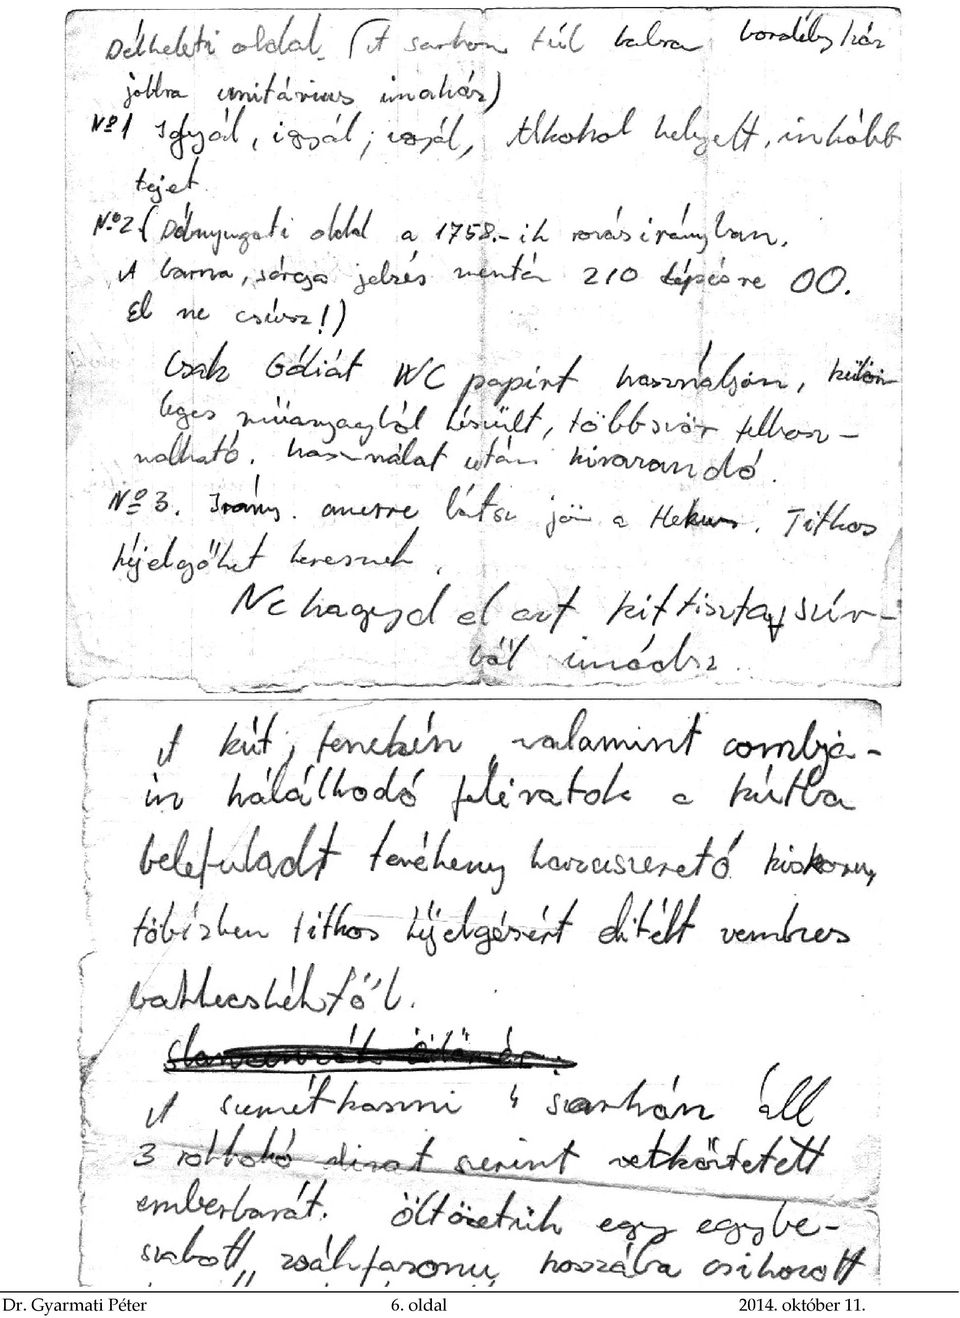 Délkeleti oldal. (A sarkon túl balra bordélyház
jobbra unitárius imaház)
Nº1 Igyál, igyál, igyál, Alkohol helyett, inkább
tejet
Nº2 (Délnyugati oldal a 1758.-ik rovásirányban.
A barna, sárga jelzés mentén 210 lépésre OO.
El ne csússz!)
Csak Góliát WC papírt használjon, külön
leges műanyagból készült, többször felhasz-
nálható, használat után kimosandó.
Nº 3. Irány amerre látsz jön a Hekus. Titkos
kéjelgőket keresnek.
Ne hagyd el azt kit tiszta szív-
ből imádsz.
A kút, fenekén, valamint combja-
in hálálkodó feliratok a kútba
belefuladt tevékeny hazaszerető kiskorú,
többízben titkos kéjelgésért elitélt vemhes
A szemétkosár 4 sarkán áll
3 rokokó divat szerint vetkőztetett
emberbarát. Öltözetük egy egybe-
szabott zsákfazonú, hosszába csikozott
Dr. Gyarmati Péter 6. oldal 2014. október 11.